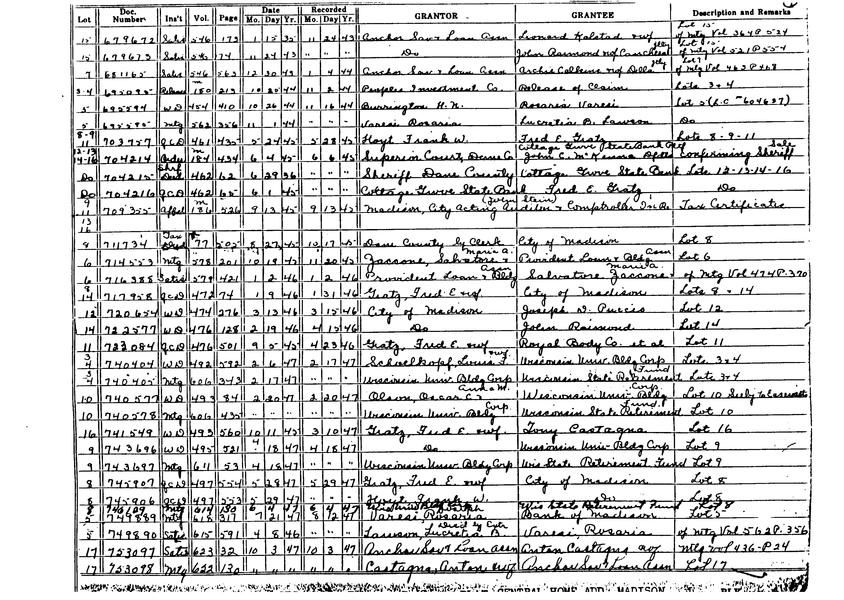 Lot Doc. Number Ins't Vol. Page Date Mo. Day Yr. Recorded Mo. Day Yr. GRANTOR GRANTEE Description and Remarks
Lot 15
15 679672 Satis 546 173 1 15 35 11 24 43 Anchor Sav & Loan Assn Leonard Halstad & wf of mtg Vol 364 P 524
Lot 15
15 679673 Satis 545 174 1 24 43 " " " Do John Raimond of mtg Vol 521 P 554
Lot 7
7 681165 Satis 546 563 12 30 43 1 4 44 Anchor Sav & Loan Assn Archie Calkins of mtg Vol 463 P 468
3-4 695095 Release 180 213 10 20 44 11 2 44 Peoples Investment Co. Release of Claim Lots 3 & 4
5 695594 WD 454 410 10 26 44 11 16 44 Burrington H. N. Rosaria Varesi Lot 5 (L.C. 604637)
5 695595 mtg 562 356 11 1 44 " " " Varesi Rosaria Lucretia B. Lawson Do
8-9
11 703757 QCD 461 435 5 24 45 5 28 45 Hoyt Frank W. Fred E. Gratz Lots 8-9-11
12-13
14-16 704214 184 434 6 4 45 6 6 45 Superior Court, Dane Co John C. McKenna Confirming Sheriff Sale
Do 704215 462 62 6 29 36 " " " Sheriff Dane County Cottage Grove State Bank Lots 12-13-14-16
Do 704216 QCD 462 65 6 1 45 " " " Cottage Grove State Bank Fred E. Gratz Do
9
11 709355 Affd 186 526 9 13 45 9 13 45 Madison, City Acting Auditor & Comptroller Tax Certificates
13
16
8 711734 Tax Deed 77 505 8 27 45 10 17 45 Dane County by Clerk City of Madison Lot 8
6 714553 Mtg 578 201 10 19 45 11 20 45 Jaccone, Salvatore & Maria A. Provident Loan & Bldg Assn Lot 6
6 716388 Satis 579 421 1 2 46 1 2 46 Provident Loan & Bldg Assn Salvatore Zaccone & Maria A. of Mtg Vol 474 P. 370
8
14 717958 QCD 472 74 1 9 46 1 31 46 Gratz, Fred E & wf City of Madison Lots 8 & 14
12 720654 WD 474 276 3 13 46 3 15 46 City of Madison Joseph D. Puccio Lot 12
14 722577 WD 476 128 2 19 46 4 15 46 Do John Raimond Lot 14
11 723084 QCD 476 501 9 5 45 4 23 46 Gratz, Fred E. & wf Royal Body Co. et al Lot 11
3
4 740404 WD 492 592 2 6 47 2 17 47 Schoelkopf, Louis F. & wf. Wisconsin Univ. Bldg Corp Lots 3 & 4
3
4 740405 Mtg 606 343 2 17 47 " " " Wisconsin Univ. Bldg Corp Wisconsin State Retirement Fund Lots 3 & 4
10 740577 WD 493 84 2 20 47 2 20 47 Olson, Oscar E & Anna M. Wisconsin Univ. Bldg Corp. Lot 10
10 740578 Mtg 606 435 " " " " " " Wisconsin Univ Bldg Corp. Wisconsin State Retirement Fund. Lot 10
16 741549 WD 493 560 10 11 45 3 10 47 Gratz, Fred E. & wf. Tony Castagna Lot 16
9 743696 WD 495 521 4 18 47 4 18 47 Do Wisconsin Univ. Bldg Corp Lot 9
9 743697 Mtg 611 53 4 18 47 " " " Wisconsin Univ. Bldg Corp Wis State Retirement Fund Lot 9
8 745907 QCD 497 554 5 28 47 5 29 47 Gratz, Fred E. & wf. City of Madison Lot 8
8 745906 QCD 497 553 5 29 47 " " " Hoyt, Frank W. Do Lot 8
8 746109 Mtg 614 130 6 4 47 6 4 47 Wis State Retirement Fund Lot 8
5 749889 Mtg 618 317 7 21 47 8 12 47 Varesi Rosaria Bank of Madison Lot 5
5 749890 Satis 615 591 4 8 46 " " " Lawson, Lucretia B. Varesi, Rosaria of Mtg Vol 562 P. 356
17 753097 Satis 623 32 10 3 47 10 3 47 Anchor Sav & Loan Assn Anton Castagna & wf Mtg Vol 436-P24
17 753098 Mtg 622 130 " " " " " " Castagna, Anton & wf Anchor Sav & Loan Assn Lot 17
GENERAL HOME ADD. MADISON